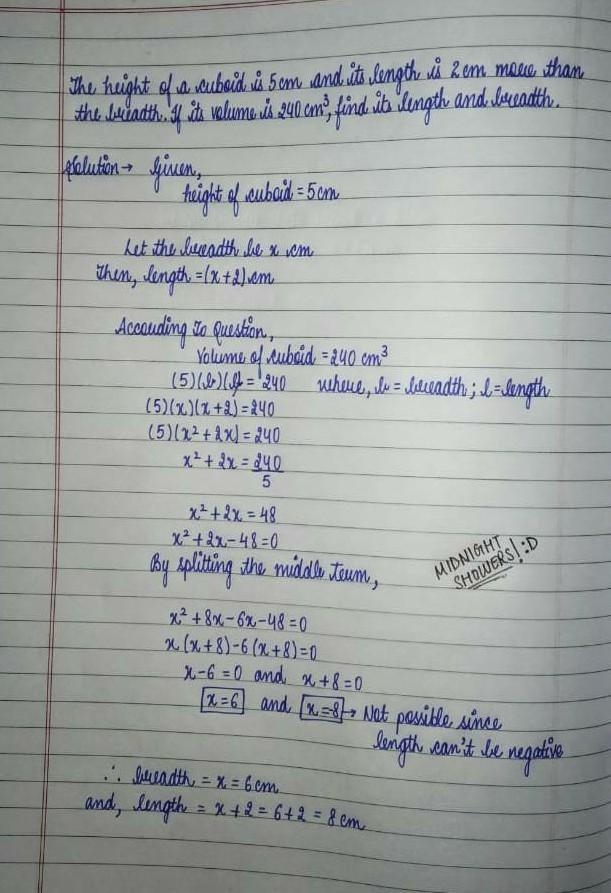 The height of a cuboid is 5 cm and its length is 2 cm more than
the breadth. If its volume is 240 cm³, find its length and breadth.
Solution → Given,
height of cuboid = 5cm
Let the breadth be x cm
Then, length = (x+2) cm
According to Question,
Volume of cuboid = 240 cm³
(5)(b)(l) = 240 where, b = breadth ; l = length
(5)(x)(x+2) = 240
(5)(x²+2x) = 240
x² + 2x = 240
5
x² + 2x = 48
x² + 2x - 48 = 0
By splitting the middle term,
MIDNIGHT
SHOWERS! :D
x² + 8x - 6x - 48 = 0
x (x+8) - 6 (x+8) = 0
x-6 = 0 and x+8 = 0
x = 6 and x = -8 → Not possible since
length can't be negative
∴ breadth = x = 6cm
and, length = x + 2 = 6+2 = 8 cm